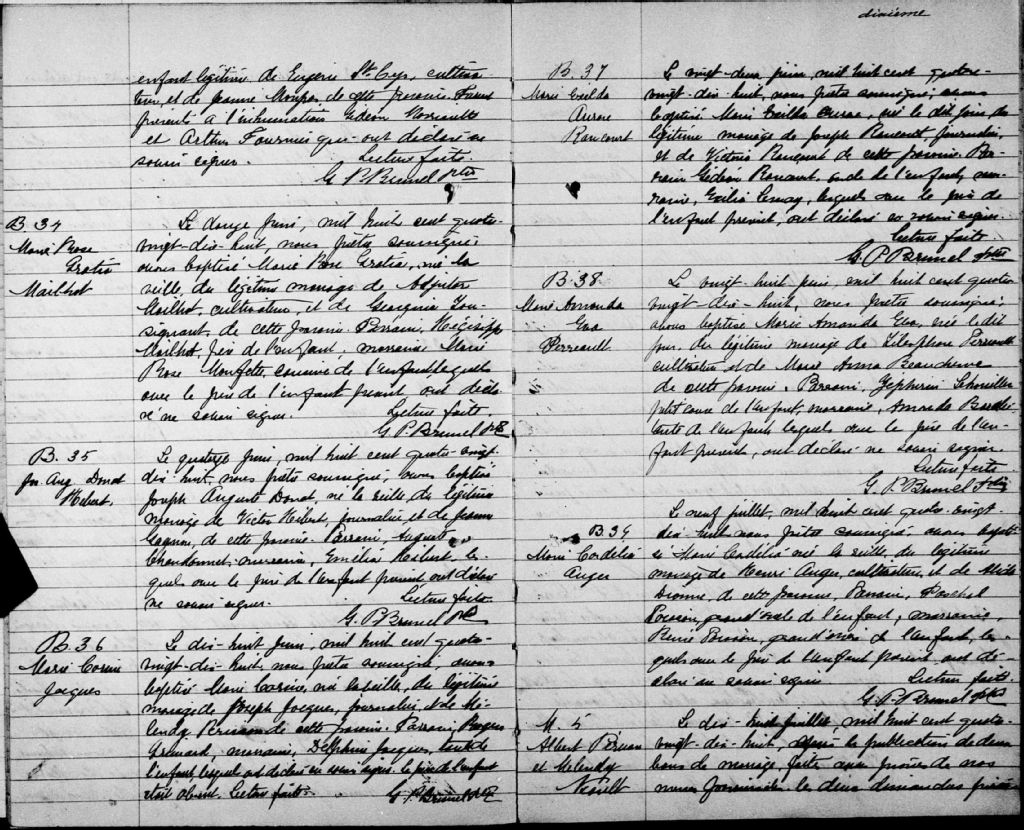 enfant légitime de Eugène St Cyr, cultiva-
teur, et de Jeanne de cette paroisse. Furent
présent à l'inhumation Gédéon
et Arthur Fournier qui ont déclaré ne
savoir signer. Lecture faite.
G. P. Brunel Ptre
B 34
Marie Rose
Gratia
Mailhot
Le douze Juin, mil huit cent quatre
vingt-dix-huit, nous prêtre soussigné,
avons baptisé Marie Rose Gratia, née la
veille, du légitime mariage de Adjutor
Mailhot, cultivateur et de Georgina Tou-
signant, de cette paroisse. Parrain,
Mailhot, père de l'enfant, marraine Marie
Rose cousine de l'enfant lesquels
avec le père de l'enfant présent, ont décla-
ré ne savoir signer. Lecture faite.
G. P. Brunel Ptre
B. 35
Jos Aug. Donat
Hébert
Le quatorze Juin, mil huit cent quatre-vingt-
dix-huit, nous prêtre soussigné, avons baptisé
Joseph Auguste Donat, né la veille du légitime
mariage de Victor Hébert, journalier et de
Gagnon, de cette paroisse. Parrain, Auguste
Charbonnet, marraine, Emélia Hébert les-
quels avec le père de l'enfant présent ont déclaré
ne savoir signer. Lecture faite
G. P. Brunel Ptre
B. 36
Marie Corine
Jacques
Le dix-huit Juin, mil huit cent quatre-
vingt-dix-huit, nous prêtre soussigné, avons
baptisé Marie Corine, née la veille, du légitime
mariage de Joseph Jacques, journalier, et de Mé-
lenda de cette paroisse. Parrain,
marraine, Delphine Jacques, tante de
l'enfant, lesquels ont déclaré ne savoir signer. Le père de l'enfant
était absent. Lecture faite. G. P. Brunel Ptre
dixième
B. 37
Marie Exelda
Aurore
Rancourt
Le vingt-deux juin, mil huit cent quatre-
vingt-dix-huit, nous prêtre soussigné, avons
baptisé Marie Exilda Aurore, née le dit jour du
légitime mariage de Joseph Rancourt journalier,
et de Victoria Rancourt de cette paroisse. Par-
rain Gédéon Rancourt, oncle de l'enfant, mar-
raine, Exilia Lemay, lesquels avec le père de
l'enfant présent, ont déclaré ne savoir signer.
Lecture faite
G. P. Brunel Ptre
B. 38
Marie Amanda
Eva
Perreault
Le vingt-huit juin mil huit cent quatre
vingt-dix-huit, nous prêtre soussigné,
avons baptisé Marie Amanda Eva, née le dit
jour, du légitime mariage de Télesphore Perreault
cultivateur et de Marie Anna Beauchesne
de cette paroisse. Parrain, Zéphirin
petit cousin de l'enfant, marraine, Amanda
tante de l'enfant lesquels avec le père de l'en-
fant présent, ont déclaré ne savoir signer.
Lecture faite
G. P. Brunel Ptre
B. 39
Marie Cordélia
Auger
Le neuf juillet, mil huit cent quatre-vingt-
dix-huit nous prêtre soussigné, avons bapti-
sé Marie Cordélia née la veille, du légitime
mariage de Henri Auger, cultivateur, et de
Dionne, de cette paroisse, Parrain, Paschal
Poisson, grand'oncle de l'enfant, marraine,
Poisson, grand'mère de l'enfant, les-
quels avec le père de l'enfant présent, ont dé-
claré ne savoir signer. Lecture faite.
G. P. Brunel Ptre
M. 5
Albert
et Mélenda
Le dix-huit juillet, mil huit cent quatre
vingt-dix-huit, après la publication de deux
bans de mariage faite aux prônes de nos
messes paroissiales les deux dimanches